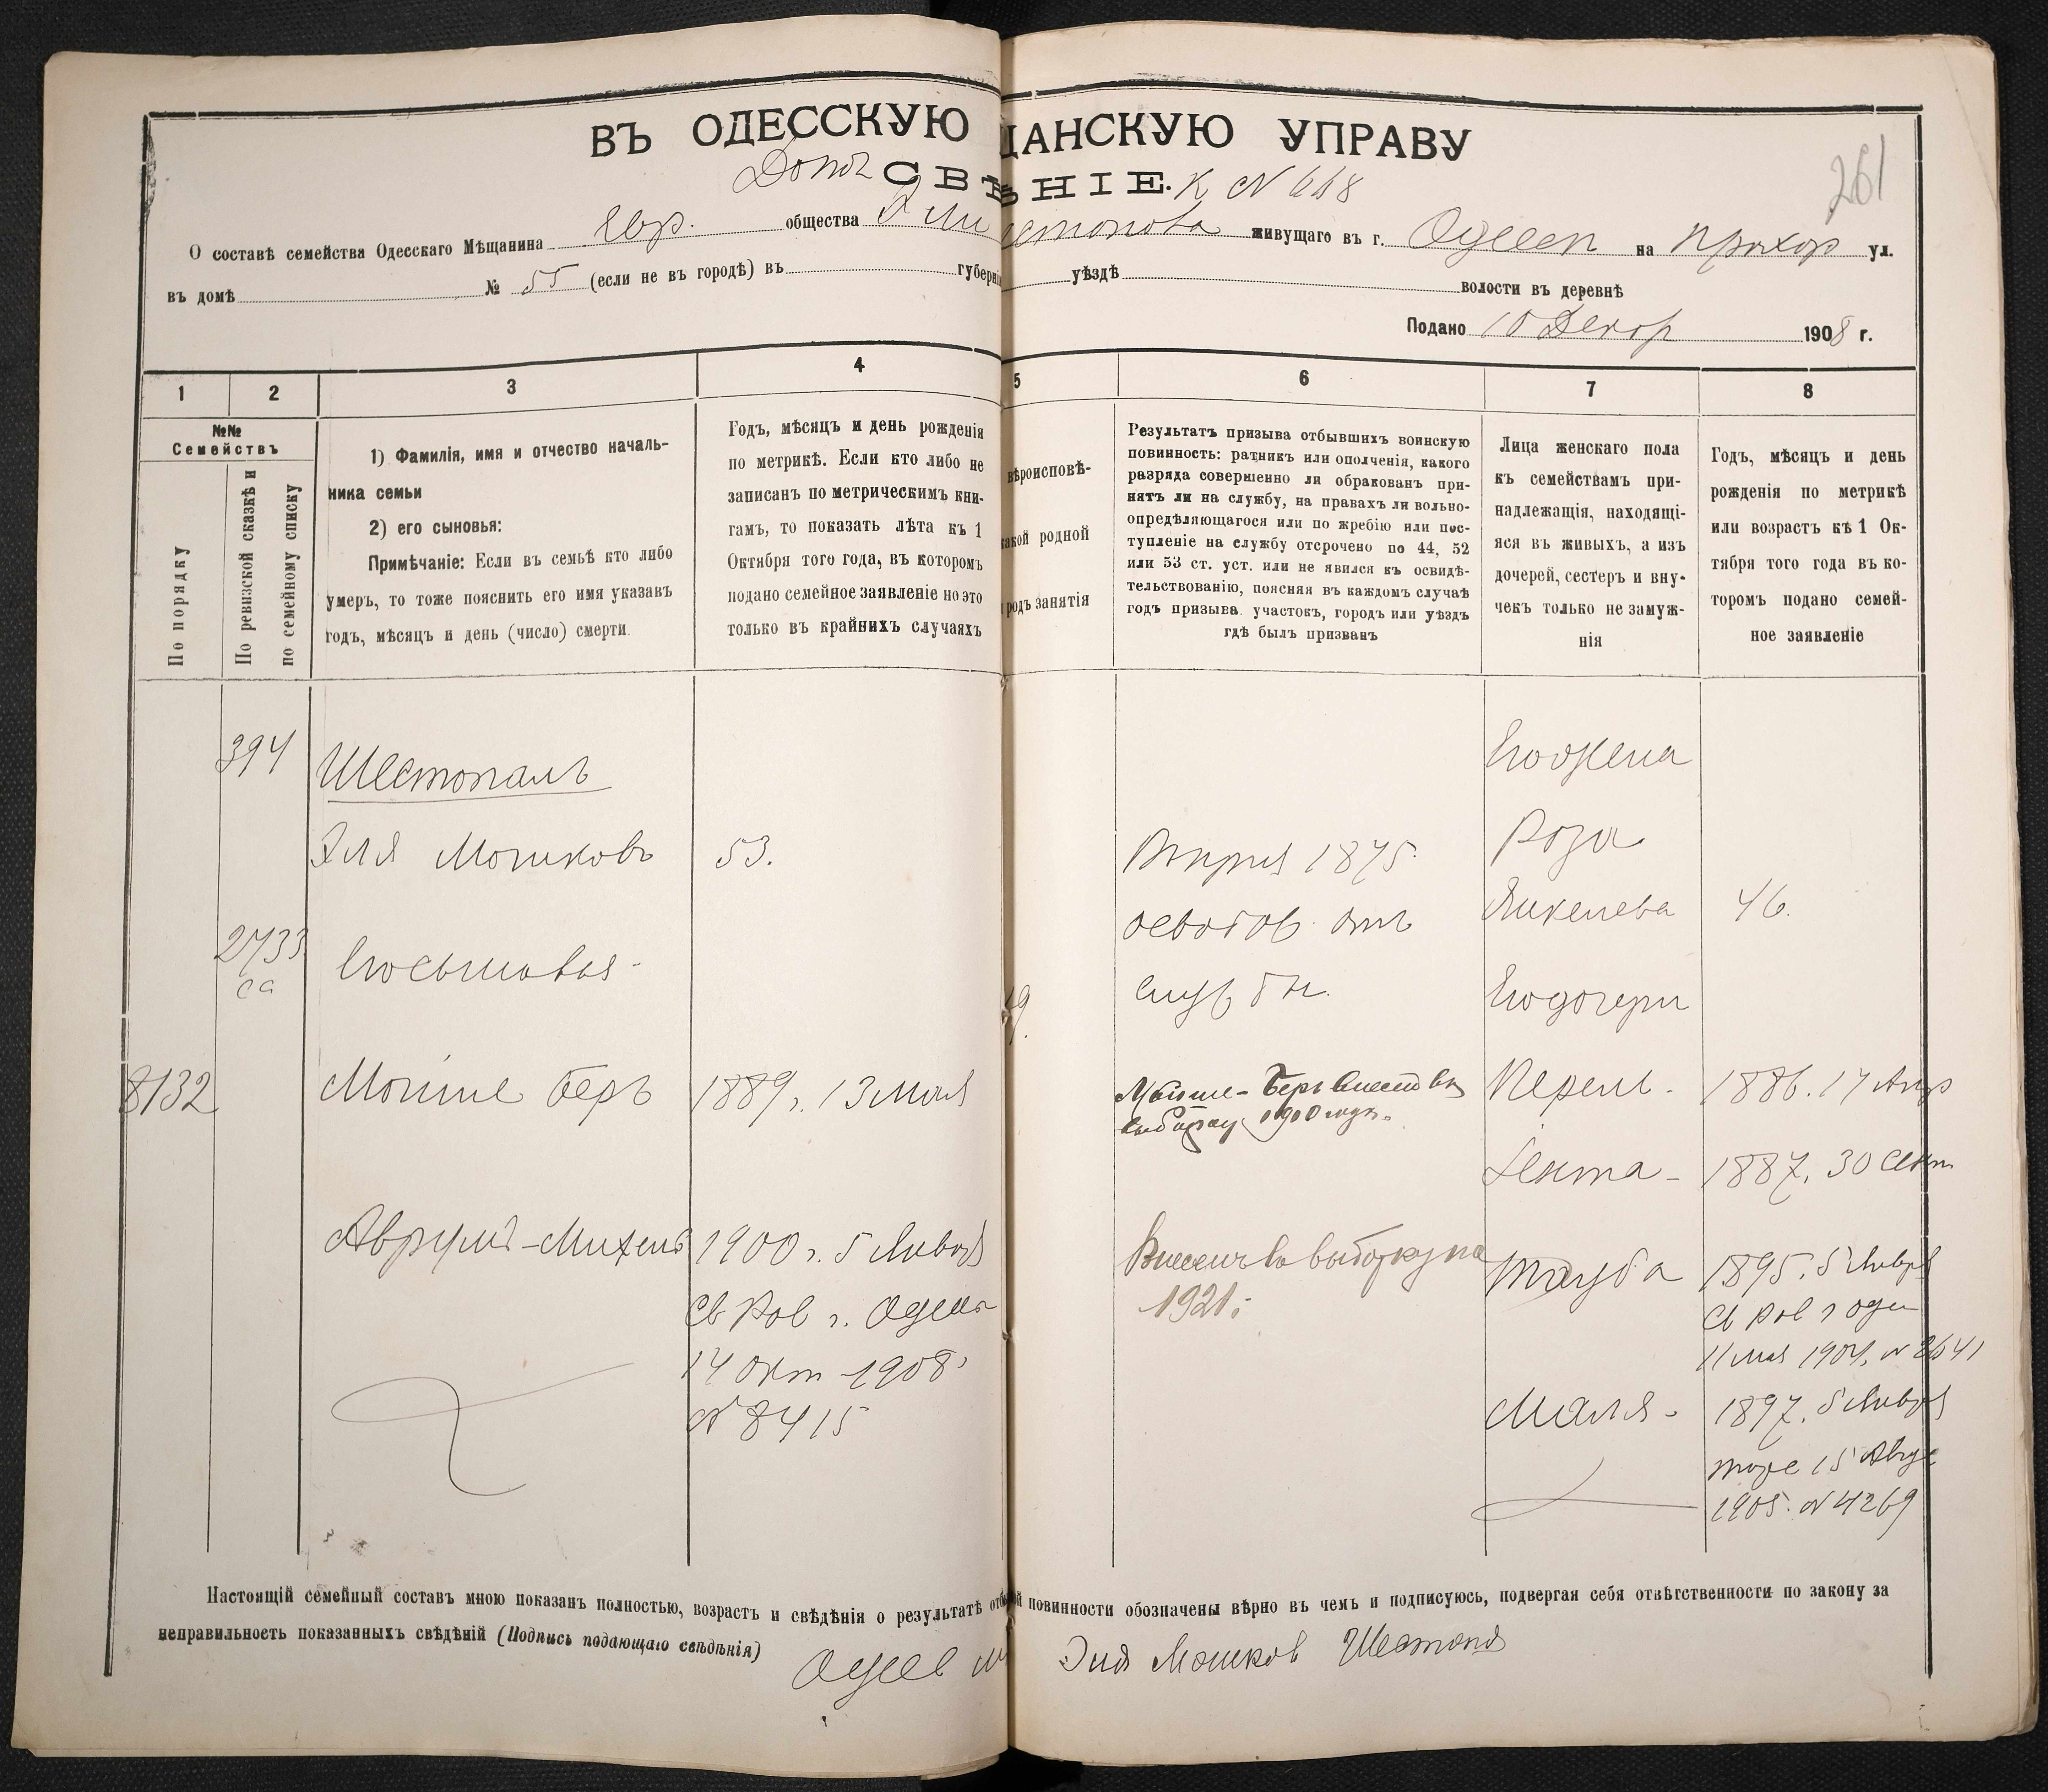 ВЪ ОДЕССКУЮ ЩАНСКУЮ УПРАВУ
261
СВѢ НІЕ. К N 668
О составѣ семейства Одесскаго Мѣщанина Евр. общества Эли естопова живущаго въ г. Одессѣ на Прохор ул.
въ домѣ № 55 (если не въ городѣ) въ губерніи уѣздѣ волости въ деревнѣ
Подано 10 Декбр 1908 г.
1 2 3 4 5 6 7 8
№№
Семействъ
По порядку
По ревизской сказкѣ и
по семейному списку
1) Фамилія, имя и отчество началь-
ника семьи
2) его сыновья:
Примѣчаніе: Если въ семьѣ кто либо
умеръ, то тоже пояснить его имя указавъ
годъ, мѣсяцъ и день (число) смерти.
Годъ, мѣсяцъ и день рожденія
по метрикѣ. Если кто либо не
записанъ по метрическимъ кни-
гамъ, то показать лѣта къ 1
Октября того года, въ которомъ
подано семейное заявленіе но это
только въ крайнихъ случаяхъ
вѣроисповѣ-
какой родной
родъ занятія
Результатъ призыва отбывшихъ воинскую
повинность: ратникъ или ополченія, какого
разряда совершенно ли обракованъ при-
нятъ ли на службу, на правахъ ли вольно-
опредѣляющагося или по жребію или пос-
тупленіе на службу отсрочено по 44, 52
или 53 ст. уст. или не явился къ освидѣ-
тельствованію, поясняя въ каждомъ случаѣ
годъ призыва участокъ, городъ или уѣздъ
гдѣ былъ призванъ
Лица женскаго пола
къ семействамъ при-
надлежащія, находящі-
яся въ живыхъ, а изъ
дочерей, сестеръ и вну-
чекъ только не замуж-
нія
Годъ, мѣсяцъ и день
рожденія по метрикѣ
или возрастъ къ 1 Ок-
тября того года въ ко-
торомъ подано семей-
ное заявленіе
394 Шестопалъ Его жена
Эля Мошковъ 53. 1875. Роза
освобов. отъ Янкелева 46.
2733 Его сыновья - службы. Его дочери
8132 Мойше Беръ 1889 г. 13 Мая Мойше-Беръ внесенъ въ Перель - 1886. 17 Апр
выборку 1910 года.
Гента - 1887. 30 Сент
Аврумъ-Михель 1900 г. 5 Января Внесенъ въ выборку на Тауба 1895. 5 Январ
Св Рав г. Одессы 1921 г. Св Рав г Одес
14 Окт 1908 11 мая 1904. N 2641
N 8415 Маля - 1897. 5 Январ
тоже 15 Авгус
1905. N 4269
Настоящій семейный составъ мною показанъ полностью, возрастъ и свѣдѣнія о результатѣ отбы ой повинности обозначены вѣрно въ чемъ и подписуюсь, подвергая себя отвѣтственности по закону за
неправильность показанныхъ свѣдѣній (Подпись подающаго свѣдѣнія)
Одес м Эля Мошков Шестопал